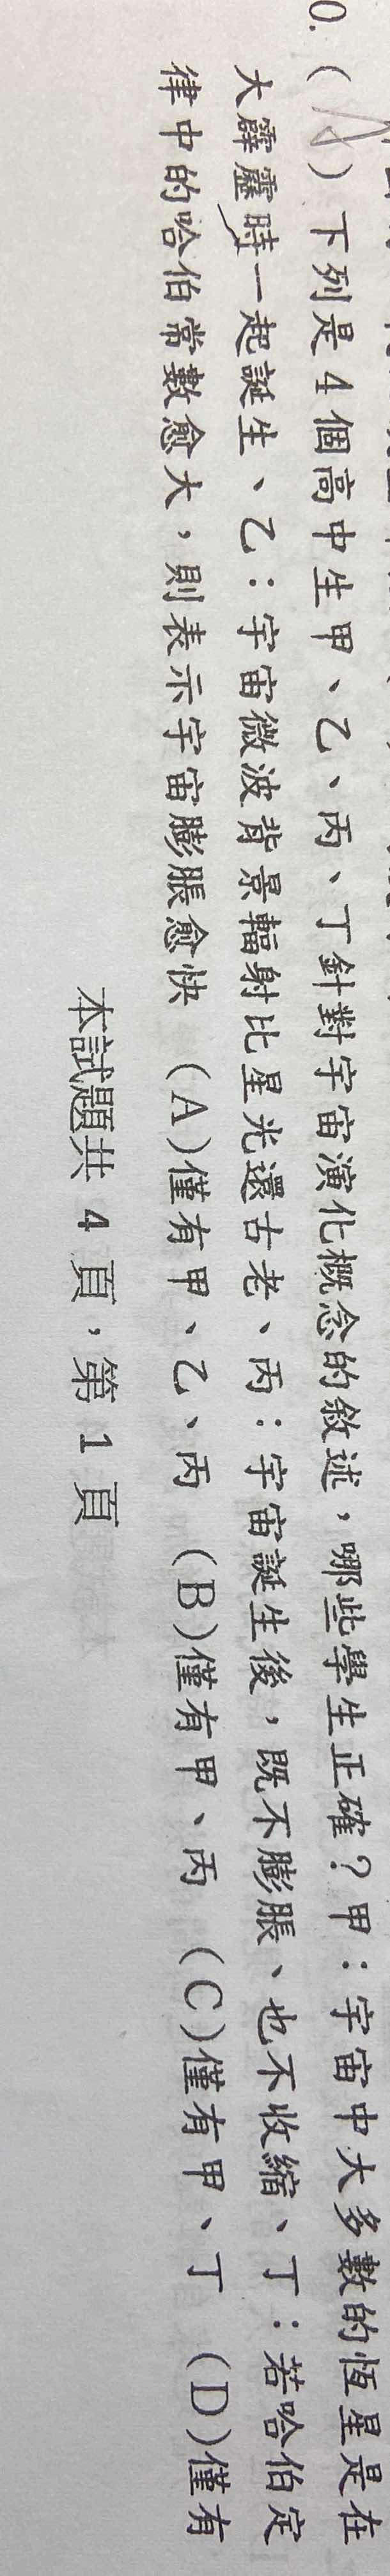 0. (A) 下列是 4 個高中生甲、乙、丙、丁針對宇宙演化概念的敘述，哪些學生正確？甲：宇宙中大多數的恆星是在
大霹靂時一起誕生、乙：宇宙微波背景輻射比星光還古老、丙：宇宙誕生後，既不膨脹、也不收縮、丁：若哈伯定
律中的哈伯常數愈大，則表示宇宙膨脹愈快 (A)僅有甲、乙、丙 (B)僅有甲、丙 (C)僅有甲、丁 (D)僅有
本試題共 4 頁，第 1 頁